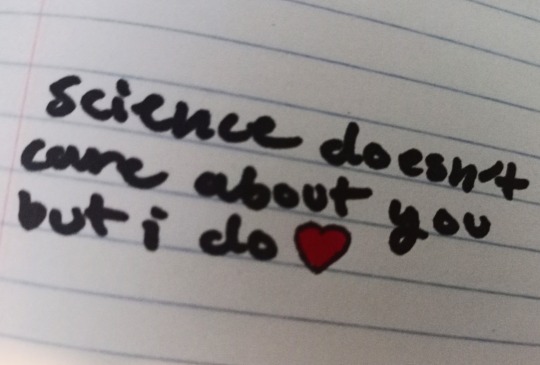 science doesn't
care about you
but i do ❤